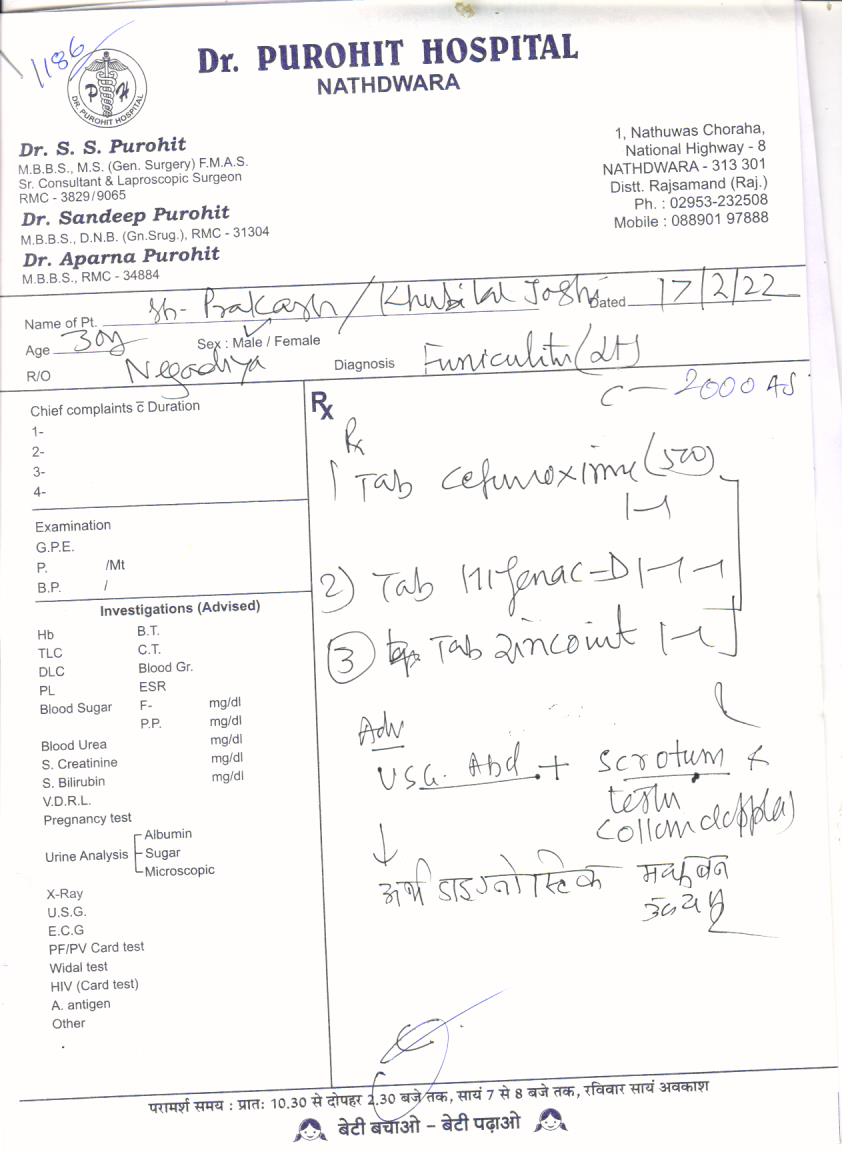 1186
Dr. PUROHIT HOSPITAL
NATHDWARA
P H
DR. PUROHIT HOSPITAL
Dr. S. S. Purohit
M.B.B.S., M.S. (Gen. Surgery) F.M.A.S.
Sr. Consultant & Laproscopic Surgeon
RMC - 3829/9065
Dr. Sandeep Purohit
M.B.B.S., D.N.B. (Gn.Srug.), RMC - 31304
Dr. Aparna Purohit
M.B.B.S., RMC - 34884
1, Nathuwas Choraha,
National Highway - 8
NATHDWARA - 313 301
Distt. Rajsamand (Raj.)
Ph. : 02953-232508
Mobile : 088901 97888
Name of Pt. Sh- Prakash / Khubilal Joshi Dated 17/2/22
Age 30y Sex : Male / Female
R/O Negadiya Diagnosis Funiculitis (Lt)
C - 2000 AS
Chief complaints c̄ Duration
1-
2-
3-
4-
Examination
G.P.E.
P. /Mt
B.P. /
Investigations (Advised)
Hb B.T.
TLC C.T.
DLC Blood Gr.
PL ESR
Blood Sugar F- mg/dl
P.P. mg/dl
Blood Urea mg/dl
S. Creatinine mg/dl
S. Bilirubin mg/dl
V.D.R.L.
Pregnancy test
Urine Analysis Albumin
Sugar
Microscopic
X-Ray
U.S.G.
E.C.G
PF/PV Card test
Widal test
HIV (Card test)
A. antigen
Other
Rx
Rx
1 Tab Cefuroxime (500)
1-1
2) Tab Hifenac-D 1-1-1
3 Tab Zincoint 1-1
Adv
USG. Abd. + Scrotum &
testis
अर्थ डाइग्नोस्टिक
परामर्श समय : प्रातः 10.30 से दोपहर 2.30 बजे तक, सायं 7 से 8 बजे तक, रविवार सायं अवकाश
बेटी बचाओ - बेटी पढ़ाओ